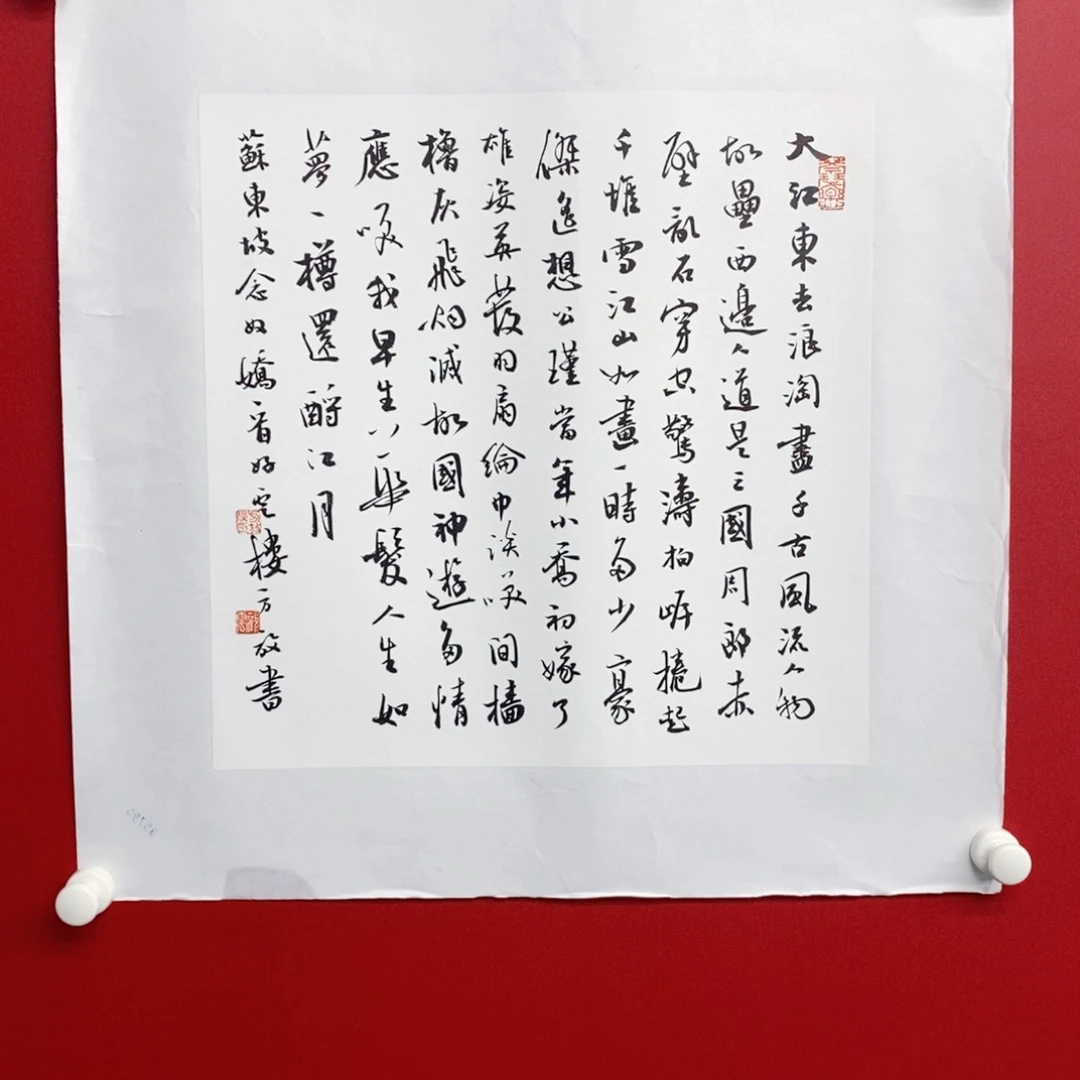 大江東去浪淘盡千古風流人物
故壘西邊人道是三國周郎赤
壁亂石穿空驚濤拍岸捲起
千堆雪江山如畫一時多少豪
傑遙想公瑾當年小喬初嫁了
雄姿英發羽扇綸巾談笑間檣
櫓灰飛烟滅故國神遊多情
應笑我早生華髮人生如
夢一樽還酹江月
蘇東坡念奴嬌一首好雲樓方放書